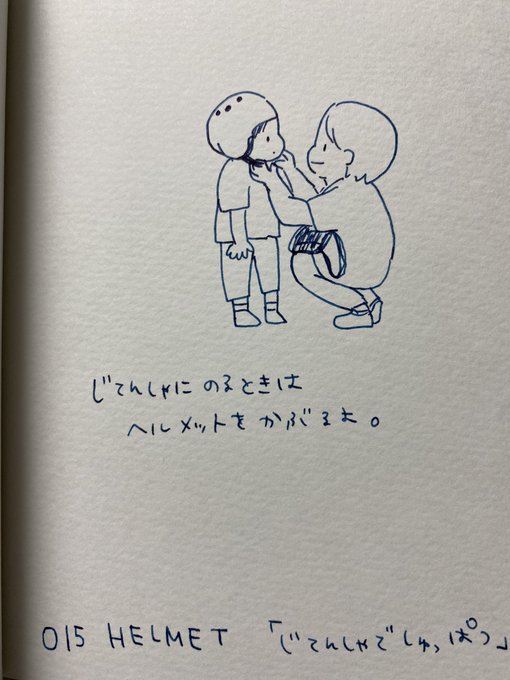 じてんしゃに のるときは
ヘルメットを かぶるよ。
015 HELMET 「じてんしゃで しゅっぱつ」